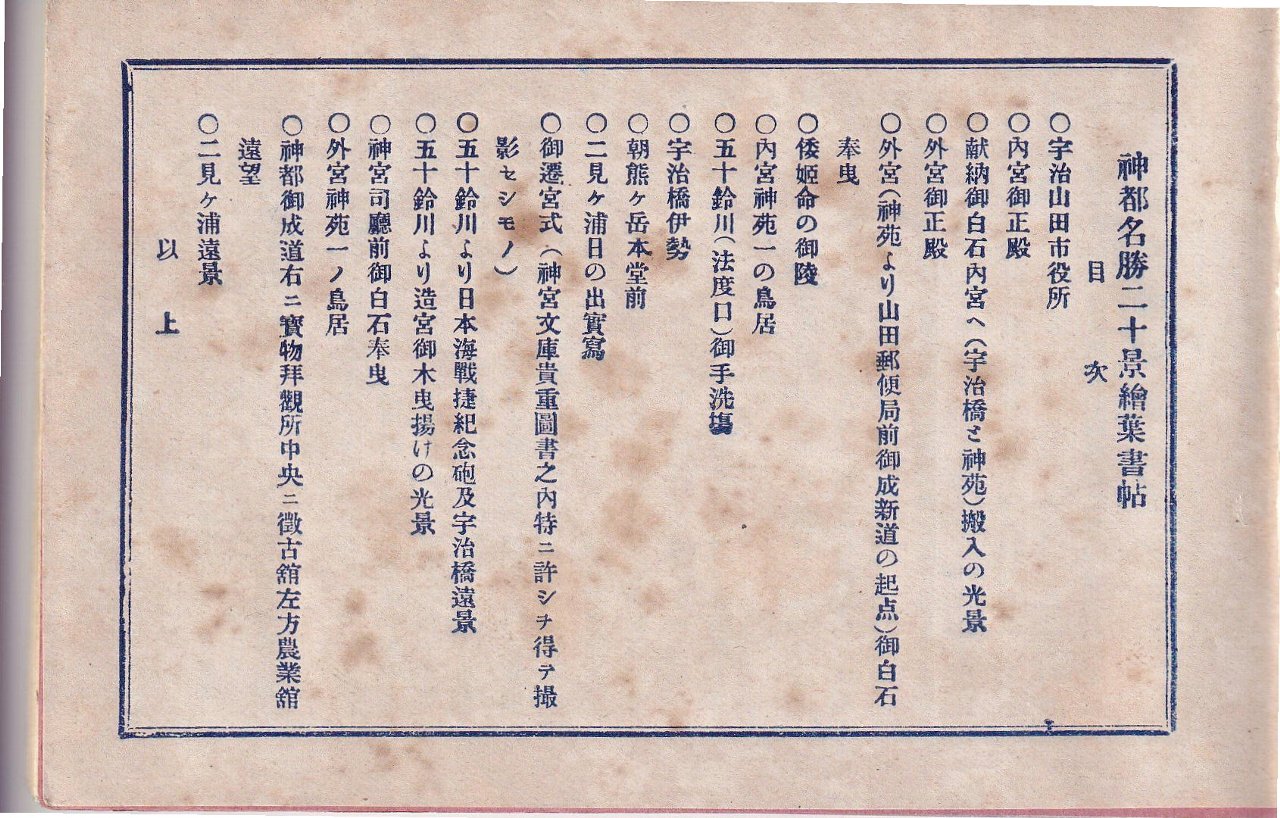 神都名勝二十景繪葉書帖
目　次
〇宇治山田市役所
〇內宮御正殿
〇献納御白石內宮へ（宇治橋と神苑）搬入の光景
〇外宮御正殿
〇外宮（神苑より山田郵便局前御成新道の起点）御白石
奉曳
〇倭姬命の御陵
〇內宮神苑一の鳥居
〇五十鈴川（法度口）御手洗塲
〇宇治橋伊勢
〇朝熊ヶ岳本堂前
〇二見ヶ浦日の出實寫
〇御遷宮式（神宮文庫貴重圖書之內特ニ許シチ得テ撮
影セシモノ）
〇五十鈴川より日本海戰捷紀念砲及宇治橋遠景
〇五十鈴川より造宮御木曳揚けの光景
〇神宮司廳前御白石奉曳
〇外宮神苑一ノ鳥居
〇神都御成道右ニ寶物拜觀所中央ニ徵古舘左方農業舘
遠望
〇二見ヶ浦遠景
以　上